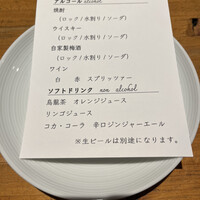 アルコール alcohol
焼酎
(ロック/水割り/ソーダ)
ウイスキー
(ロック/水割り/ソーダ)
自家製梅酒
(ロック/水割り/ソーダ)
ワイン
白 赤 スプリッツァー
ソフトドリンク non alcohol
烏龍茶 オレンジジュース
リンゴジュース
コカ・コーラ 辛口ジンジャーエール
※生ビールは別途になります。